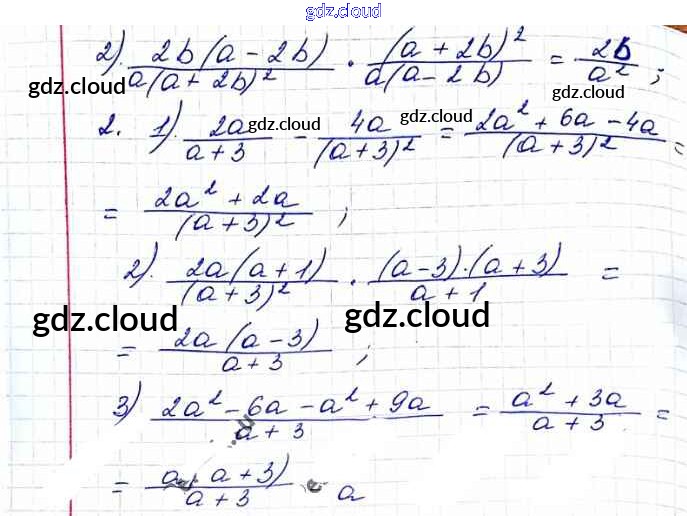 gdz.cloud
2). 2b(a - 2b) / a(a + 2b)² · (a + 2b)² / a(a - 2b) = 2b / a² ;
gdz.cloud gdz.cloud gdz.cloud
2. 1). 2a / a + 3 - 4a / (a + 3)² = 2a² + 6a - 4a / (a + 3)² =
gdz.cloud gdz.cloud gdz.cloud
= 2a² + 2a / (a + 3)² ;
2). 2a(a + 1) / (a + 3)² · (a - 3)·(a + 3) / a + 1 =
gdz.cloud gdz.cloud
= 2a(a - 3) / a + 3 ;
3) 2a² - 6a - a² + 9a / a + 3 = a² + 3a / a + 3 =
= a a + 3) / a + 3 a